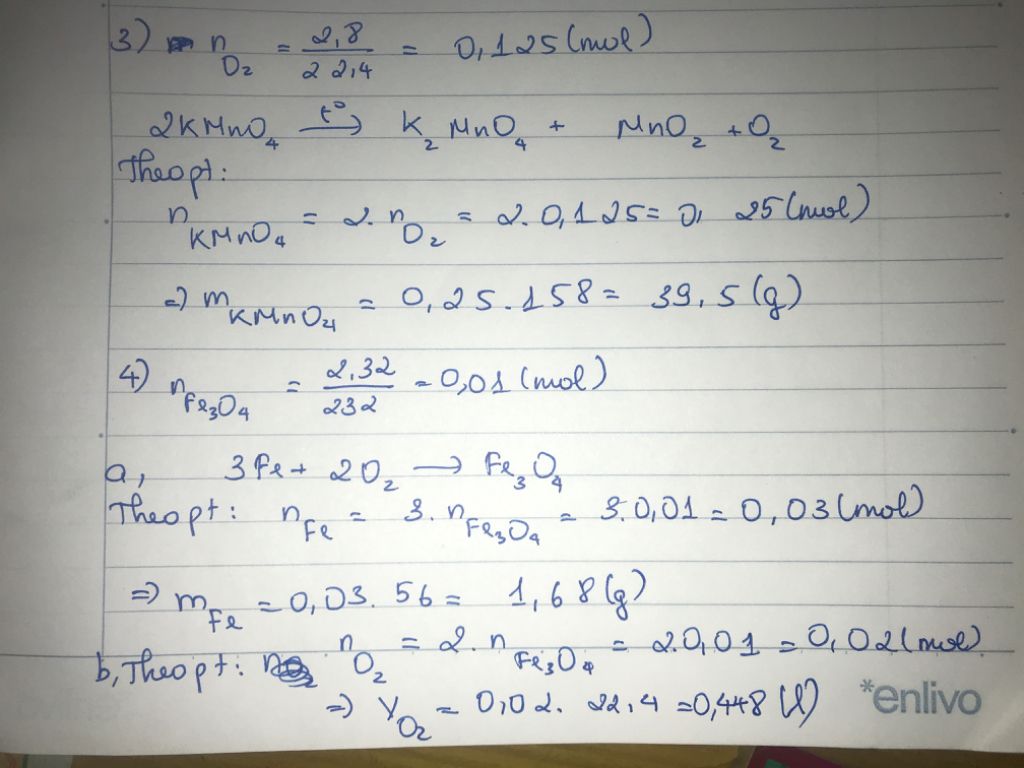 3) n O₂ = 2,8 / 22,4 = 0,125 (mol)
2KMnO₄ →t° K₂MnO₄ + MnO₂ + O₂
Theo pt:
n KMnO₄ = 2. n O₂ = 2. 0,125 = 0, 25 (mol)
=) m KMnO₄ = 0,25. 158 = 39,5 (g)
4) n Fe₃O₄ = 2,32 / 232 = 0,01 (mol)
a, 3Fe + 2O₂ → Fe₃O₄
Theo pt: n Fe = 3. n Fe₃O₄ = 3. 0,01 = 0,03 (mol)
=) m Fe = 0,03. 56 = 1,68 (g)
b, Theo pt: n O₂ = 2. n Fe₃O₄ = 2.0,01 = 0,02 (mol)
=) V O₂ = 0,02. 22,4 = 0,448 (l)
*enlivo